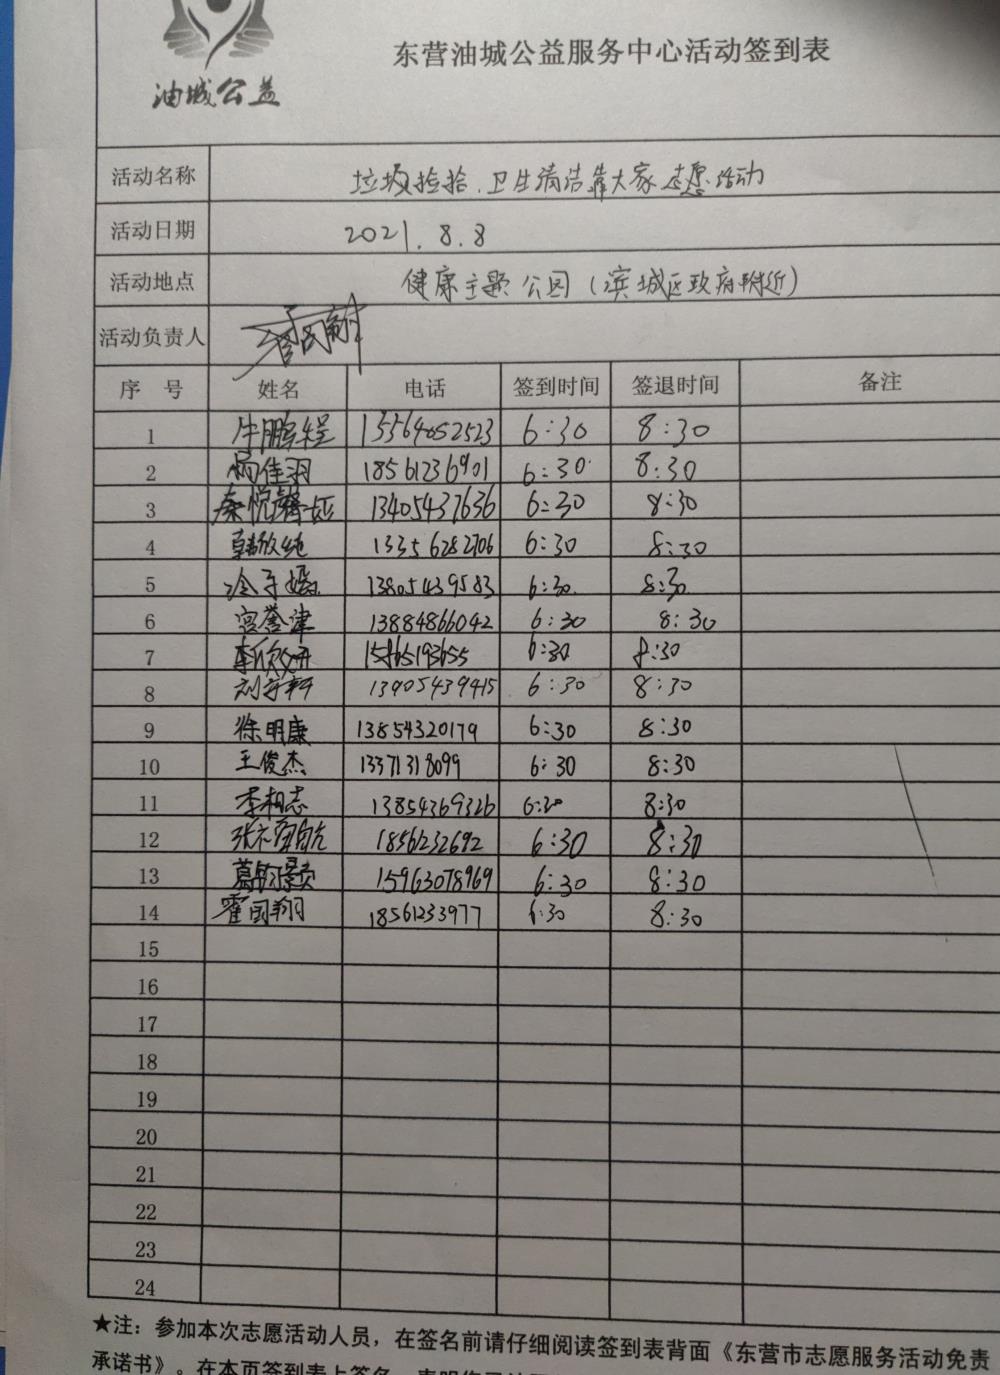 油城公益
东营油城公益服务中心活动签到表
活动名称 垃圾捡拾、卫生清洁靠大家志愿活动
活动日期 2021.8.8
活动地点 健康主题公园(滨城区政府附近)
活动负责人
序号 姓名 电话 签到时间 签退时间 备注
1 牛鹏程 13364052523 6:30 8:30
2 佳羽 18561236901 6:30 8:30
3 秦悦馨 13405437636 6:30 8:30
4 韩欣纯 13356282706 6:30 8:30
5 冷子嫣 13805439583 6:30 8:30
6 宫誉津 13884866042 6:30 8:30
7 李欣妍 15865193655 6:30 8:30
8 刘宇轩 13905439415 6:30 8:30
9 徐明康 13854320179 6:30 8:30
10 王俊杰 13371318099 6:30 8:30
11 李相志 13854369326 6:30 8:30
12 张 18561232692 6:30 8:30
13 葛钧 15963078969 6:30 8:30
14 霍国翔 18561233977 6:30 8:30
15
16
17
18
19
20
21
22
23
24
★注：参加本次志愿活动人员，在签名前请仔细阅读签到表背面《东营市志愿服务活动免责
承诺书》。在本页签到表上签名，表明您已